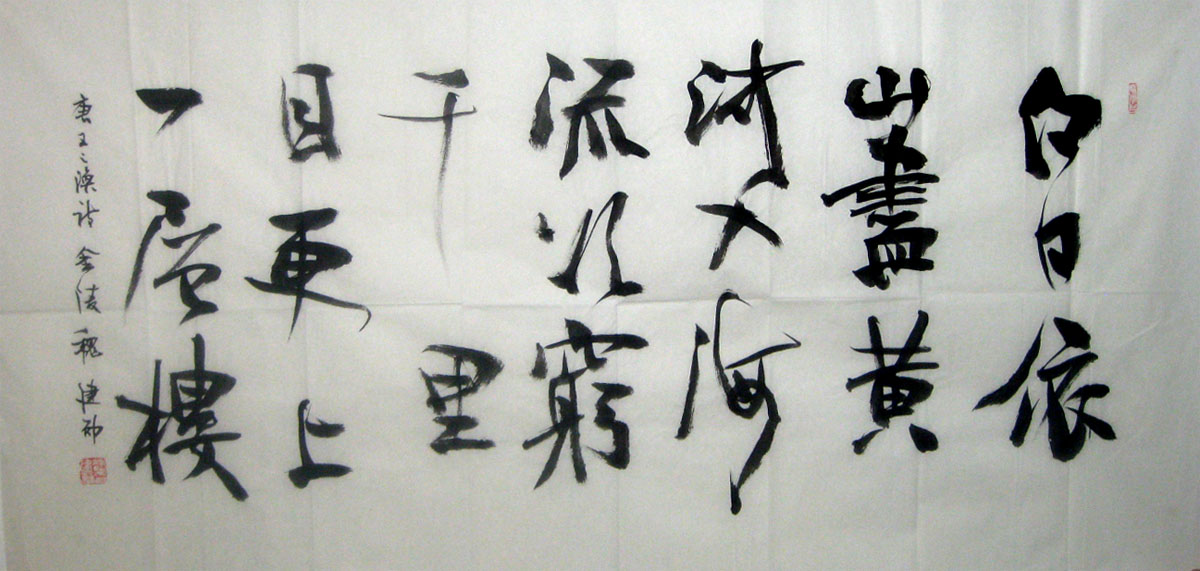 白日依
山盡黃
河入海
流欲窮
千里
目更上
一層樓
唐王之渙詩 金陵魏